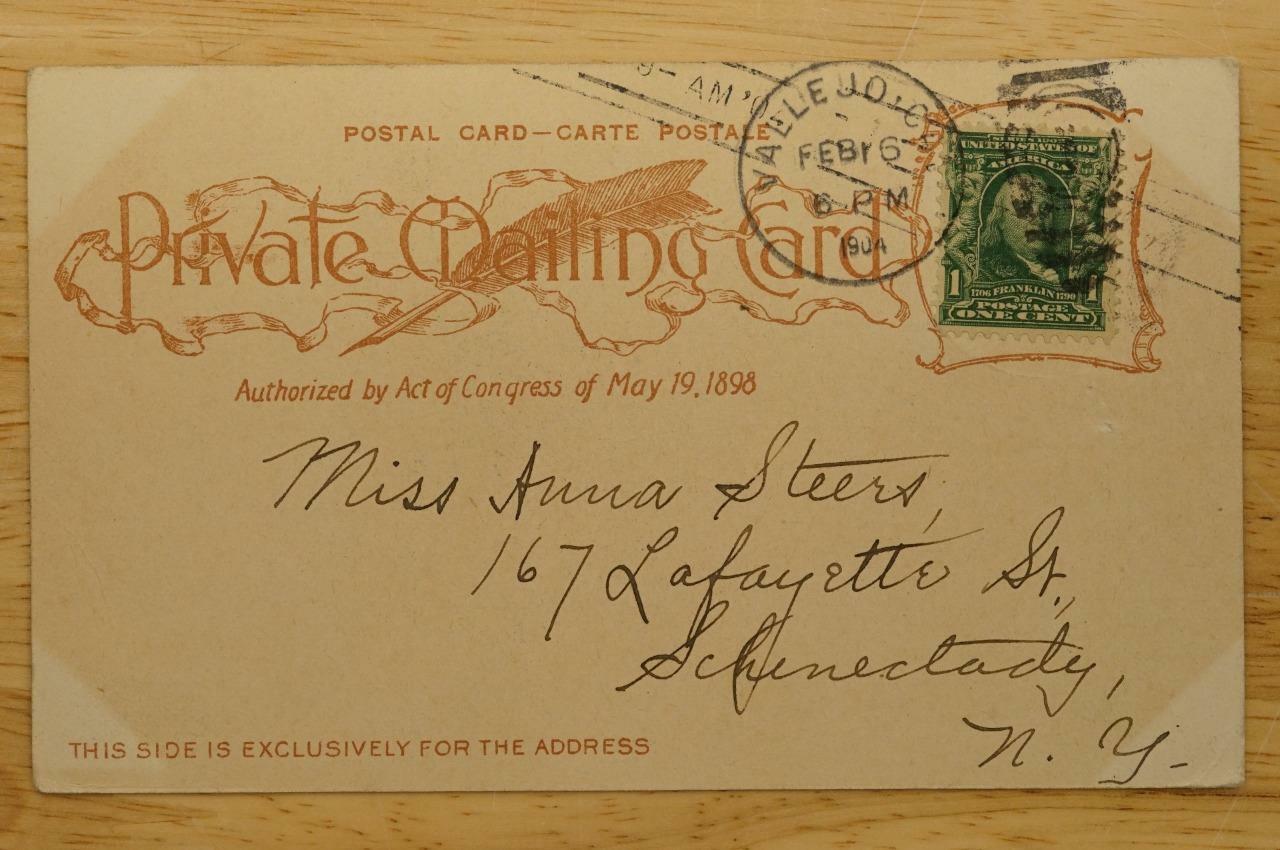 9- AM '0
POSTAL CARD—CARTE POSTALE
VALLEJO, CAL.
FEB 16
6-PM
1904
Private Mailing Card
SERIES 1902
UNITED STATES OF
AMERICA
1 1
1706 FRANKLIN 1790
POSTAGE
ONE CENT
Authorized by Act of Congress of May 19, 1898
Miss Anna Steers,
167 Lafayette St.,
Schenectady,
N. Y-
THIS SIDE IS EXCLUSIVELY FOR THE ADDRESS